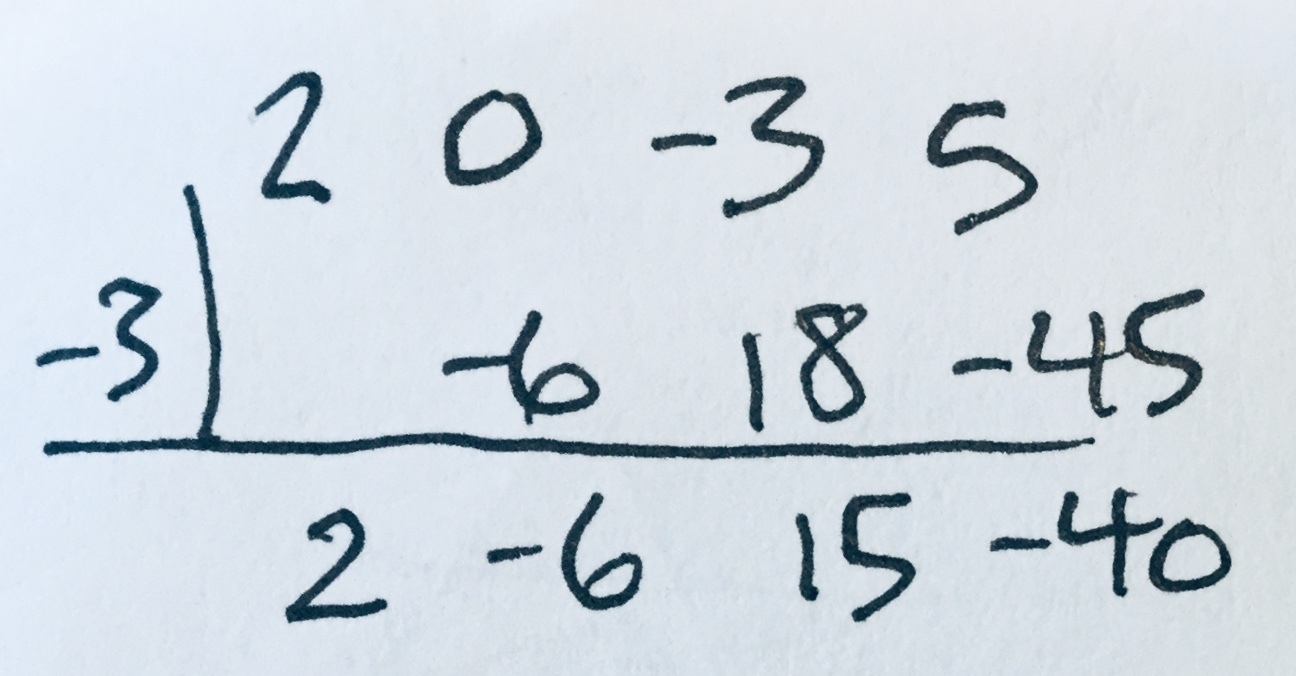 2 0 -3 5
-3 -6 18 -45
2 -6 15 -40